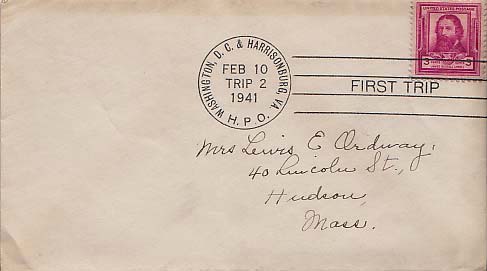 UNITED STATES POSTAGE
3 3
WASHINGTON, D. C. & HARRISONBURG, VA.
FEB 10
TRIP 2
1941
H. P. O.
FIRST TRIP
Mrs Lewis E Ordway,
40 Lincoln St.,
Hudson,
Mass.